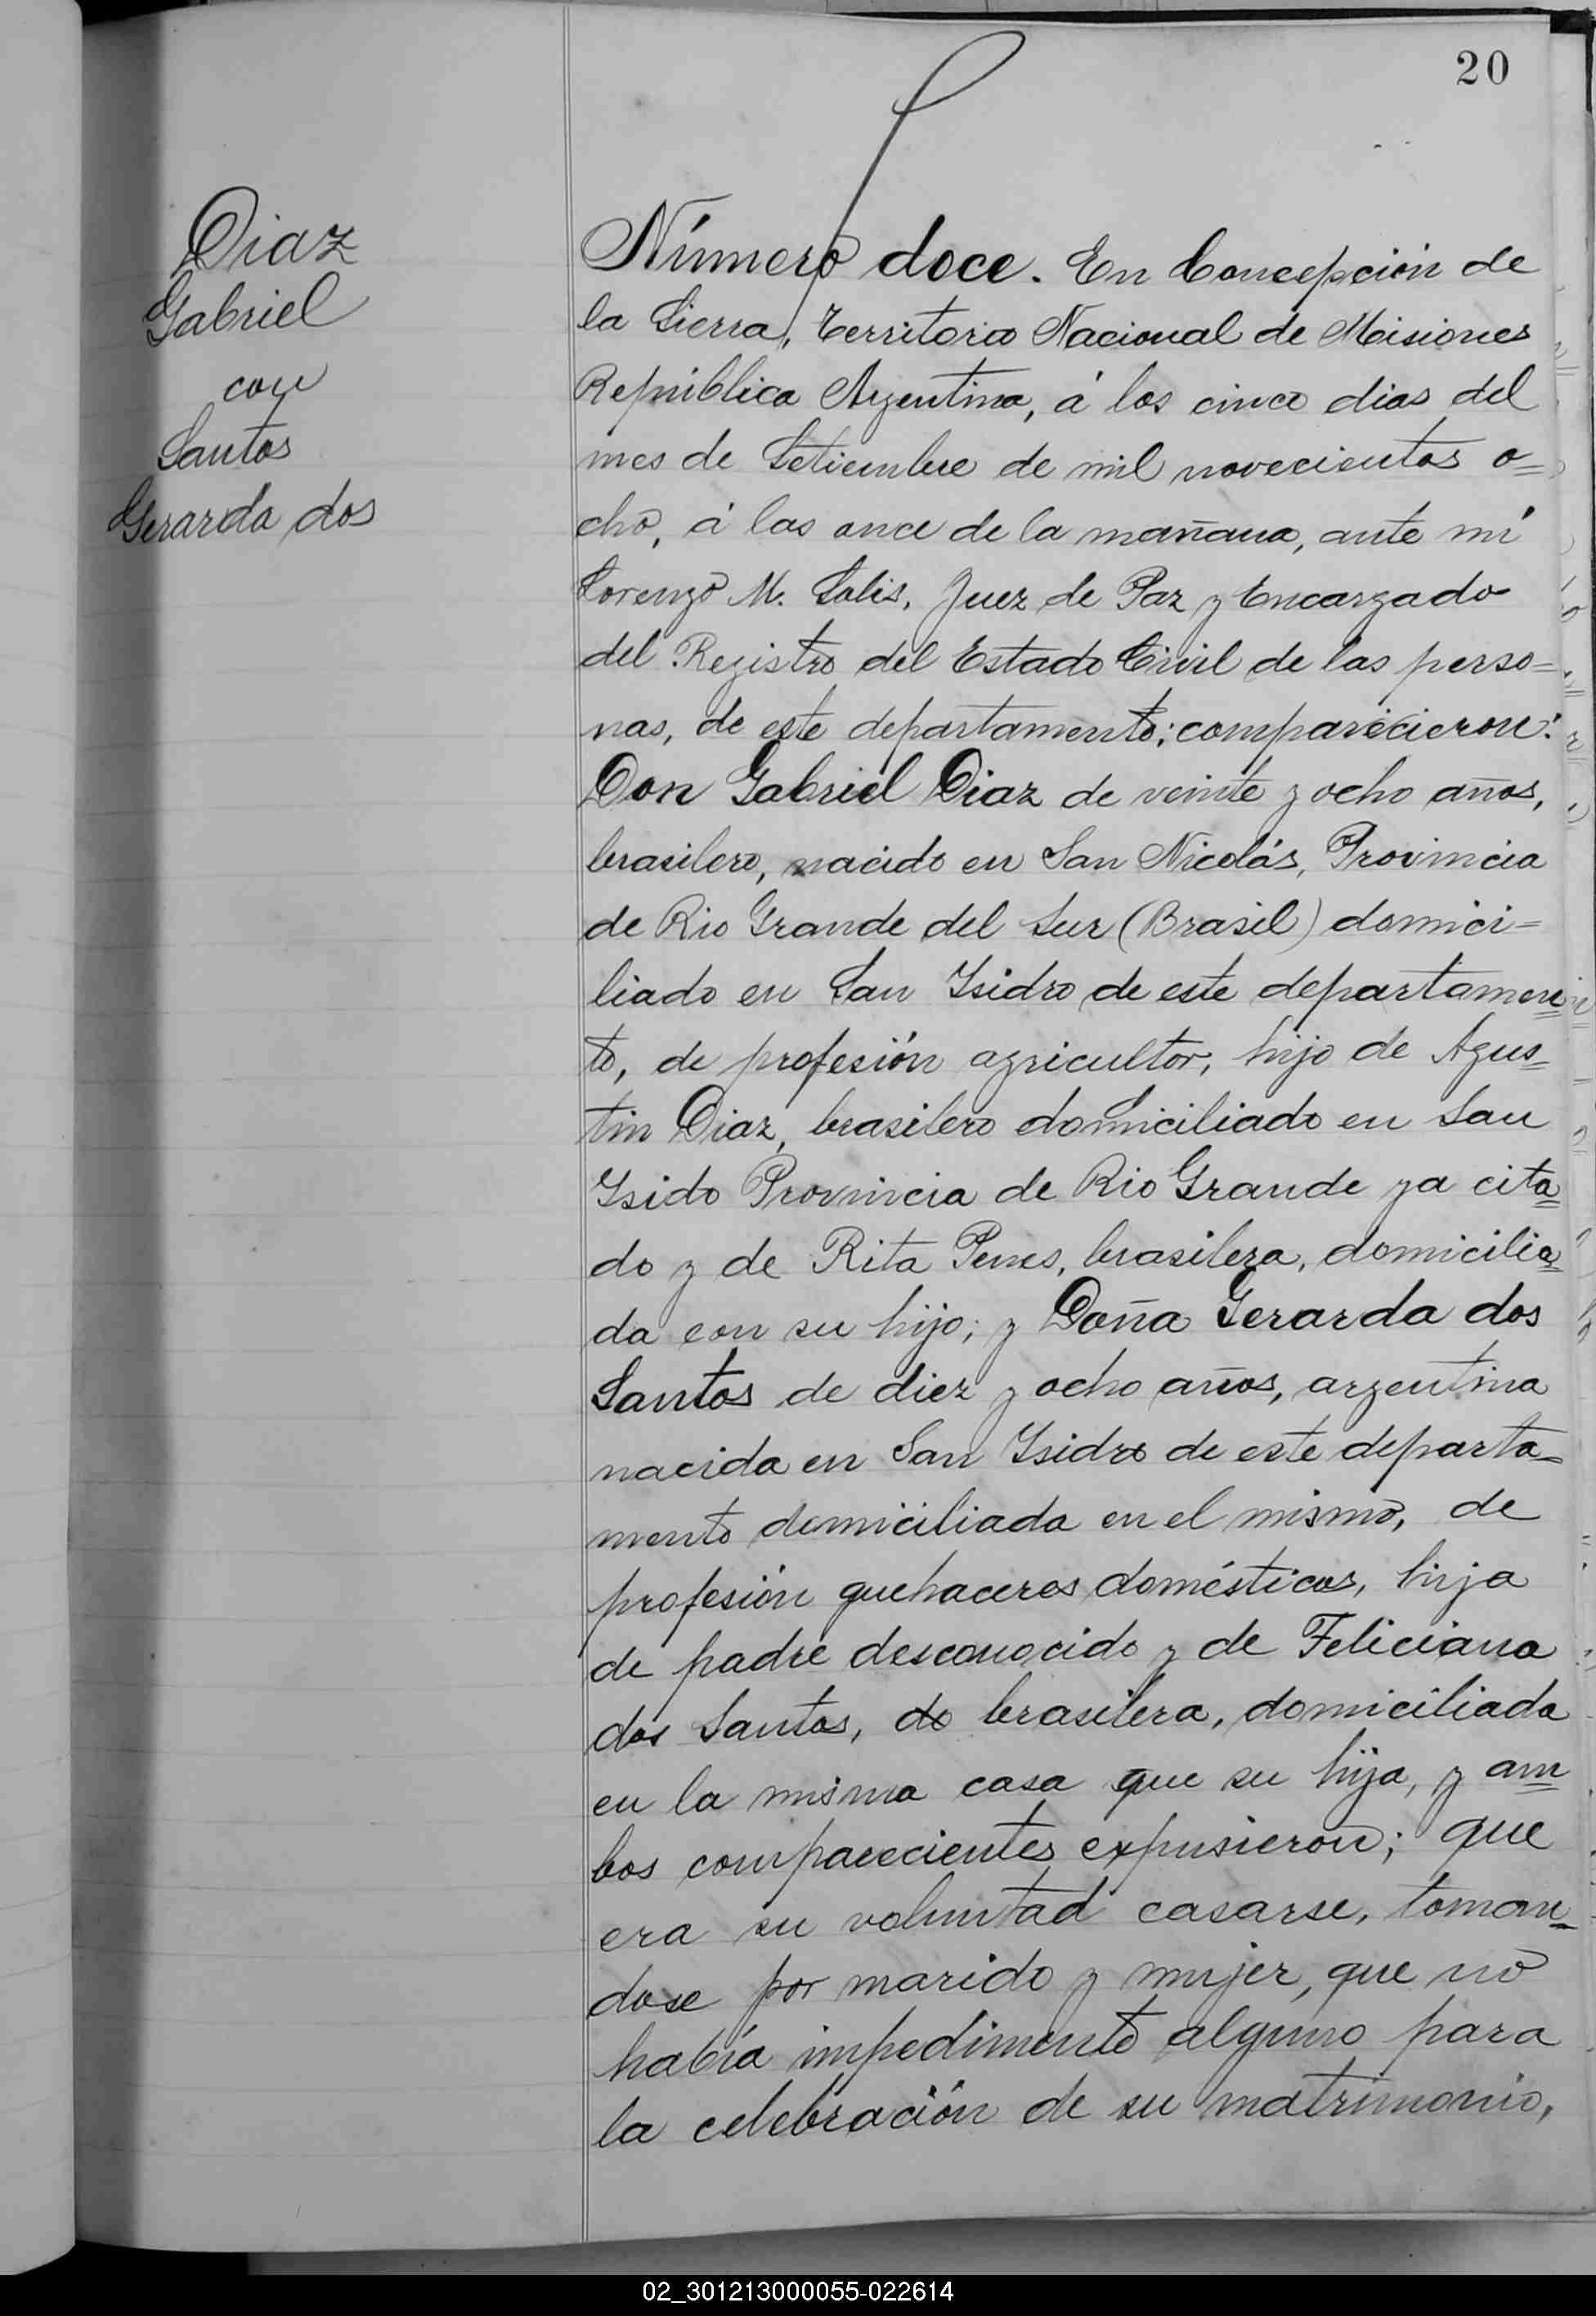 20
Diaz
Gabriel
con
Santos
Gerarda dos
Número doce. En Concepción de
la Sierra, Territorio Nacional de Misiones
República Argentina, á los cinco dias del
mes de Setiembre de mil novecientos o=
cho, á las once de la mañana, ante mí
Lorenzo M. Solis, Juez de Paz y Encargado
del Registro del Estado Civil de las perso=
nas, de este departamento; comparecieron:
Don Gabriel Diaz de veinte y ocho años,
brasilero, nacido en San Nicolás, Provincia
de Rio Grande del Sur (Brasil) domici=
liado en San Ysidro de este departamen=
to, de profesión agricultor, hijo de Agus=
tin Diaz, brasilero domiciliado en San
Ysido Provincia de Rio Grande ya cita=
do y de Rita Penes, brasilera, domicilia=
da con su hijo; y Doña Gerarda dos
Santos de diez y ocho años, argentina
nacida en San Ysidro de este departa=
mento domiciliada en el mismo, de
profesión quehaceres domésticos, hija
de padre desconocido y de Feliciana
dos Santos, do brasilera, domiciliada
en la misma casa que su hija, y am=
bos comparecientes expusieron; que
era su voluntad casarse, toman=
dose por marido y mujer, que no
había impedimento alguno para
la celebración de su matrimonio,
02_301213000055-022614